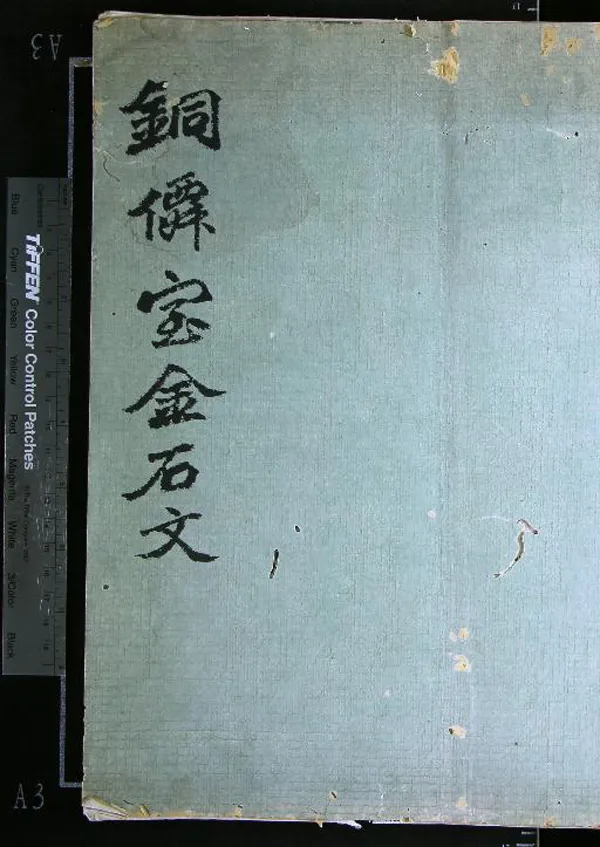 銅僊室金石文
TIFFEN Color Control Patches
Blue Cyan Green Yellow Red Magenta White 3/Color Black
A3
A3